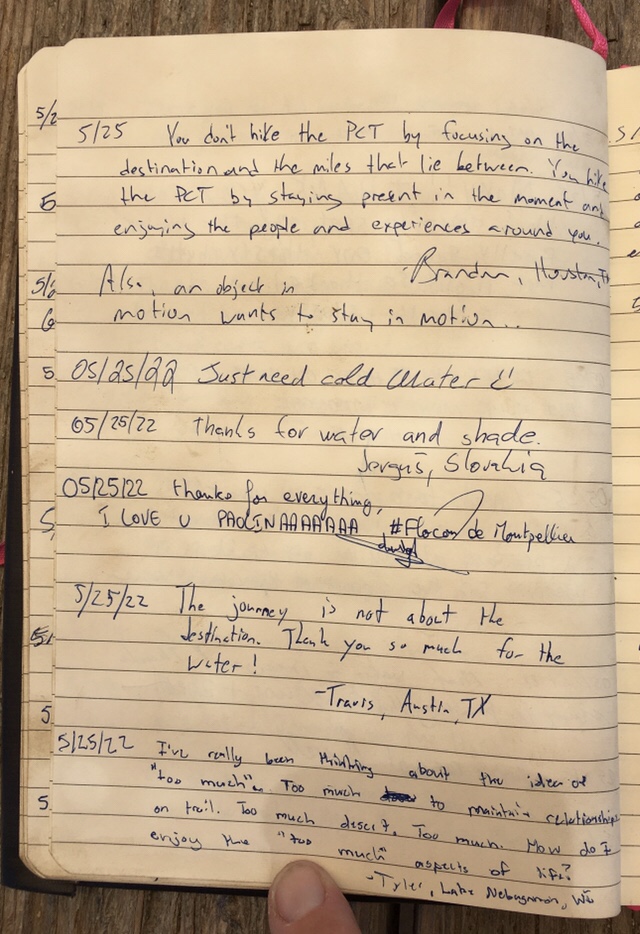 5/25 You don't hike the PCT by focusing on the
destination and the miles that lie between. You hike
the PCT by staying present in the moment and
enjoying the people and experiences around you.
-Brandon, Houston, TX
Also, an object in
motion wants to stay in motion...
05/25/22 Just need cold Water
05/25/22 Thanks for water and shade.
Jerguš, Slovakia
05/25/22 thanks for everything,
I LOVE U PAOLINAAAAAAA #Flocon de Montpellier
5/25/22 The journey is not about the
destination. Thank you so much for the
water!
-Travis, Austin, TX
5/25/22 I've really been thinking about the idea of
"too much". Too much to maintain relationships
on trail. Too much desert. Too much. How do I
enjoy the "too much" aspects of life?
-Tyler, Lake Nebagamon, WI